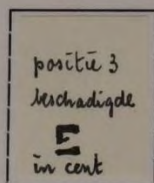 positie 3
beschadigde
E
in cent